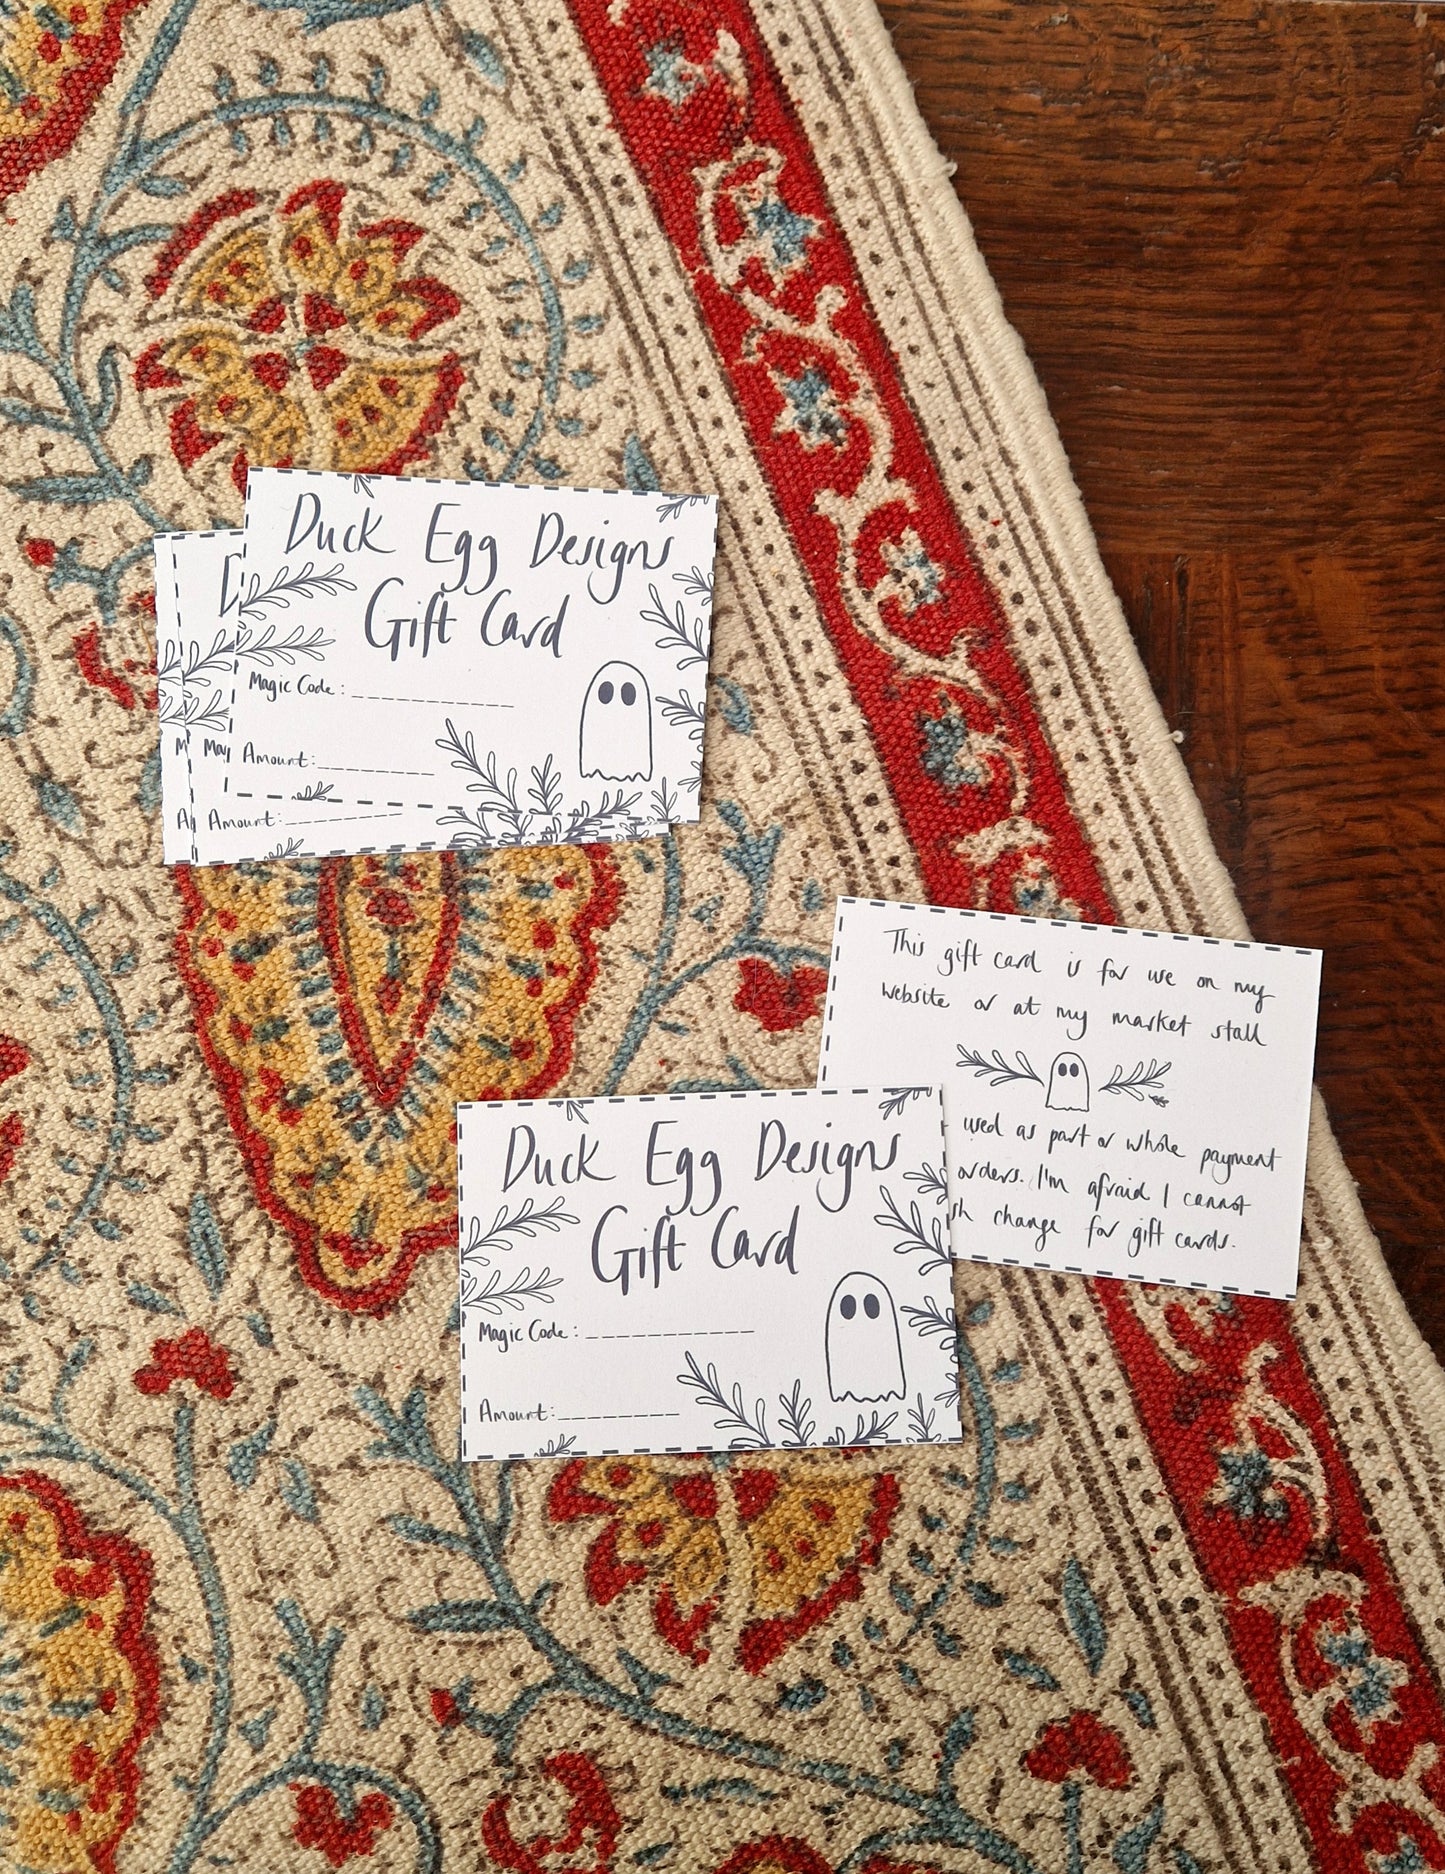 Duck Egg Designs
Gift Card
Magic Code:
Amount:
D
M
Mag
A
Amount:
This gift card is for use on my
website or at my market stall
used as part or whole payment
orders. I'm afraid I cannot
sh change for gift cards.
Duck Egg Designs
Gift Card
Magic Code:
Amount: